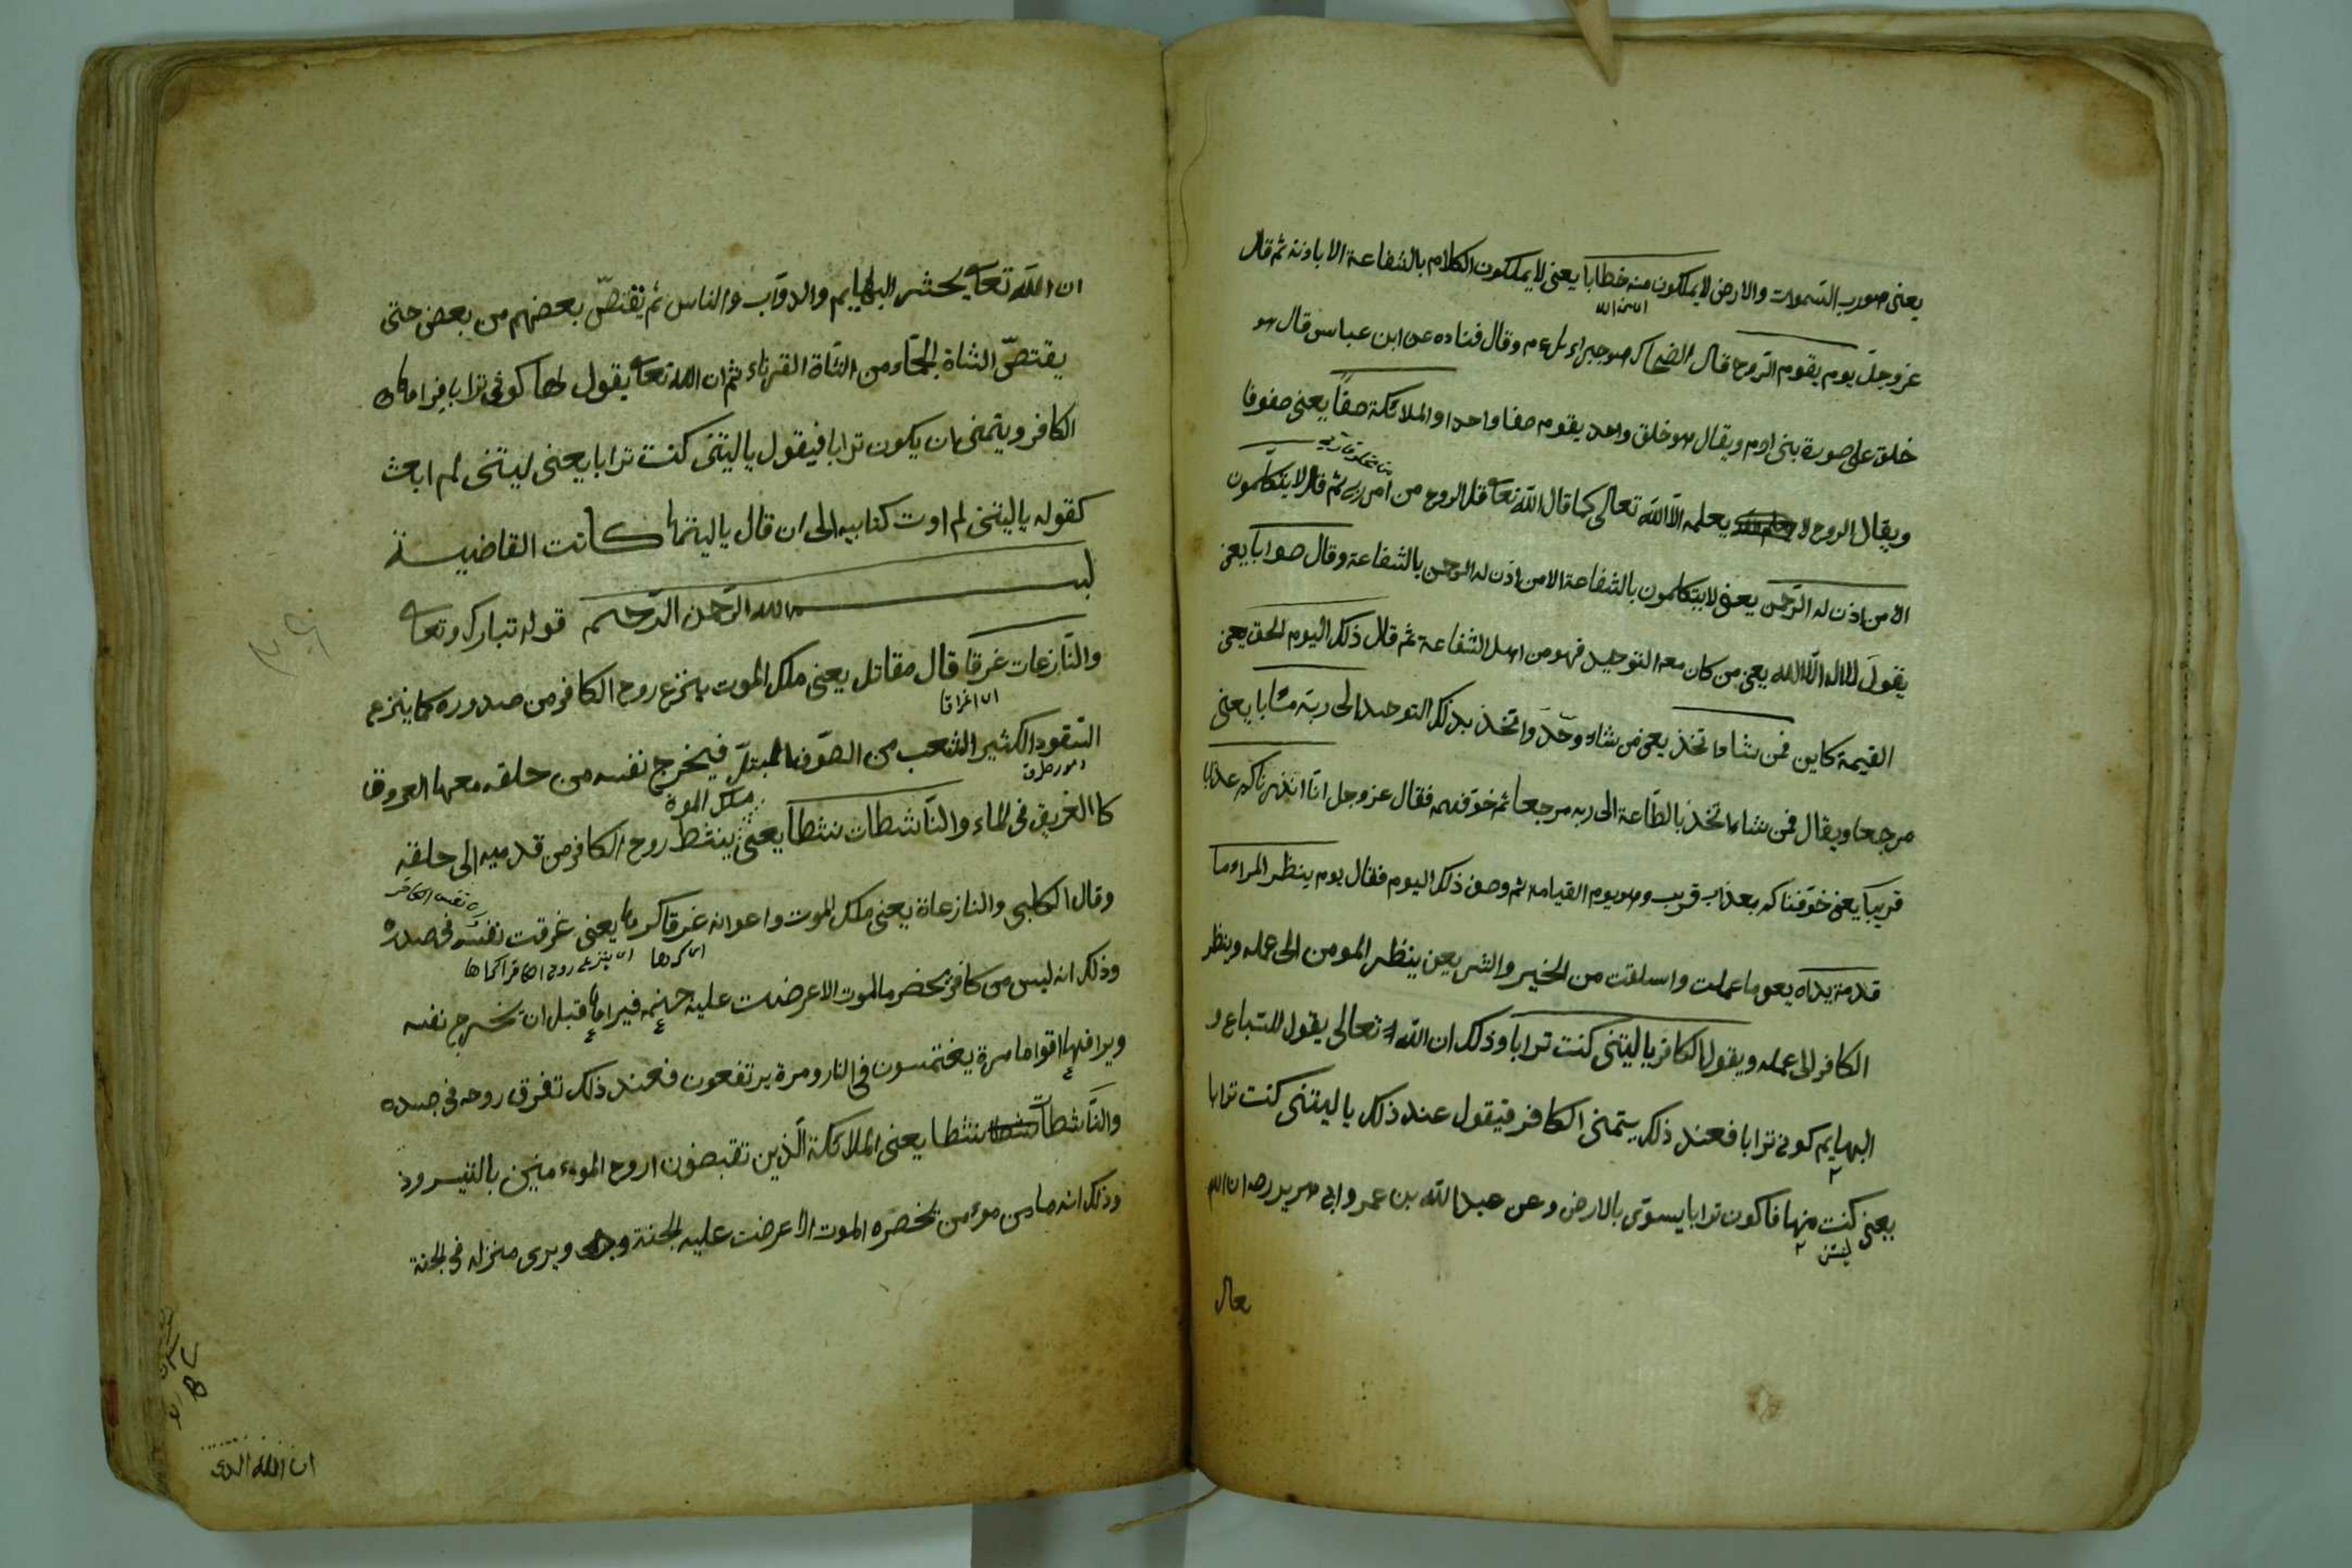 يعنى هو رب السموات والارض لا يملكون منه خطابا يعنى لا يملكون الكلام بالشفاعة الا باذنه ثم قال
عز وجل يوم يقوم الروح قال الضحاك هو جبراءيل ءم وقال قتاده عن ابن عباس قال هو
خلق على صورة بنى ادم ويقال هو خلق واحد يقوم صفا واحدا والملائكة صفا يعنى صفوفا
ويقال الروح لا يعلمه الا الله تعالى كما قال الله تعا قل الروح من امر ربى ثم قال لا يتكلمون
الا من اذن له الرحمن يعنى لا يتكلمون بالشفاعة الا من اذن له الرحمن بالشفاعة وقال صوابا يعنى
يقول لا اله الا الله يعنى من كان معه التوحيد فهو من اهل الشفاعة ثم قال ذلك اليوم الحق يعنى
القيمة كاين فمن شاء اتخذ يعنى من شاء وحد واتخذ بذلك التوحيد الى ربه مئابا يعنى
مرجعا ويقال فمن شاء اتخذ بالطاعة الى ربه مرجعا ثم خوفهم فقال عز وجل انا انذرناكم عذابا
قريبا يعنى خوفناكم بعذاب قريب وهو يوم القيامة ثم وصف ذلك اليوم فقال يوم ينظر المراء ما
قدمت يداه يعنى ما عملت واسلفت من الخير والشر يعنى ينظر المومن الى عمله وينظر
الكافر الى عمله ويقول الكافر يا ليتنى كنت ترابا وذلك ان الله تعالى يقول للسباع و
البهايم كونى ترابا فعند ذلك يتمنى الكافر فيقول عند ذلك يا ليتنى كنت ترابا
يعنى كنت منها فاكون ترابا يستوى بالارض وعن عبد الله بن عمر وابى هريره رضه ان الله
ليتنى
تعالى
ان الله تعا يحشر البهايم والدواب والناس ثم يقتص بعضهم من بعض حتى
يقتص الشاة الجماء من الشاة القرناء ثم ان الله تعا يقول لها كونى ترابا فيراها
الكافر ويتمنى ان يكون ترابا فيقول يا ليتنى كنت ترابا يعنى ليتنى لم ابعث
كقوله يا ليتنى لم اوت كتابيه الى ان قال يا ليتها كانت القاضية
بسم الله الرحمن الرحيم قوله تبارك وتعا
والنازعات غرقا قال مقاتل يعنى ملك الموت ينزع روح الكافر من صدوره كما ينزع
اى اغراقا
السقود الكثير الشعب من الصوف المبتل فيخرج نفسه من حلقه معها العروق
ملك الموة
كالغريق فى الماء والناشطات نشطا يعنى ينشط روح الكافر من قدميه الى حلقه
وقال الكلبى والنازعاة يعنى ملك الموت واعوانه غرقا كرها يعنى غرقت نفسه فى صدره
وذلك انه ليس من كافر يحضر ما الموت الا عرضت عليه جهنم فيراها قبل ان تخرج نفسه
ويرا فيها اقواما مرة يغتمسون فى النار ومرة يرتفعون فعند ذلك تغرق روحه فى جسده
والناشطات نشطا يعنى الملائكة الذين تقبضون اروح الموءمنين بالتيسر وذ
وذلك انه ما من موءمن يحضره الموت الا عرضت عليه الجنة ويرى منزله فى الجنة